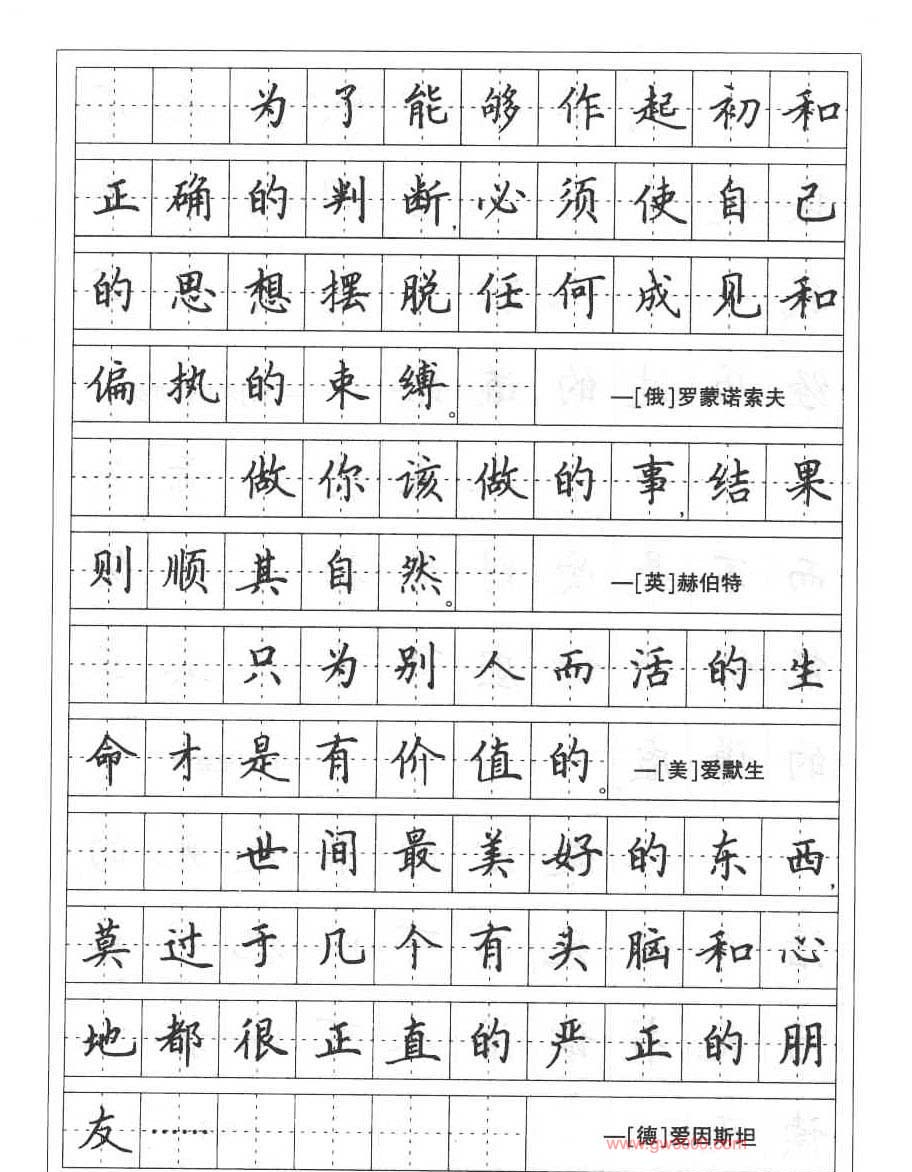 为了能够作起初和
正确的判断,必须使自己
的思想摆脱任何成见和
偏执的束缚。 —[俄]罗蒙诺索夫
做你该做的事,结果
则顺其自然。 —[英]赫伯特
只为别人而活的生
命才是有价值的。 —[美]爱默生
世间最美好的东西,
莫过于几个有头脑和心
地都很正直的严正的朋
友…… —[德]爱因斯坦